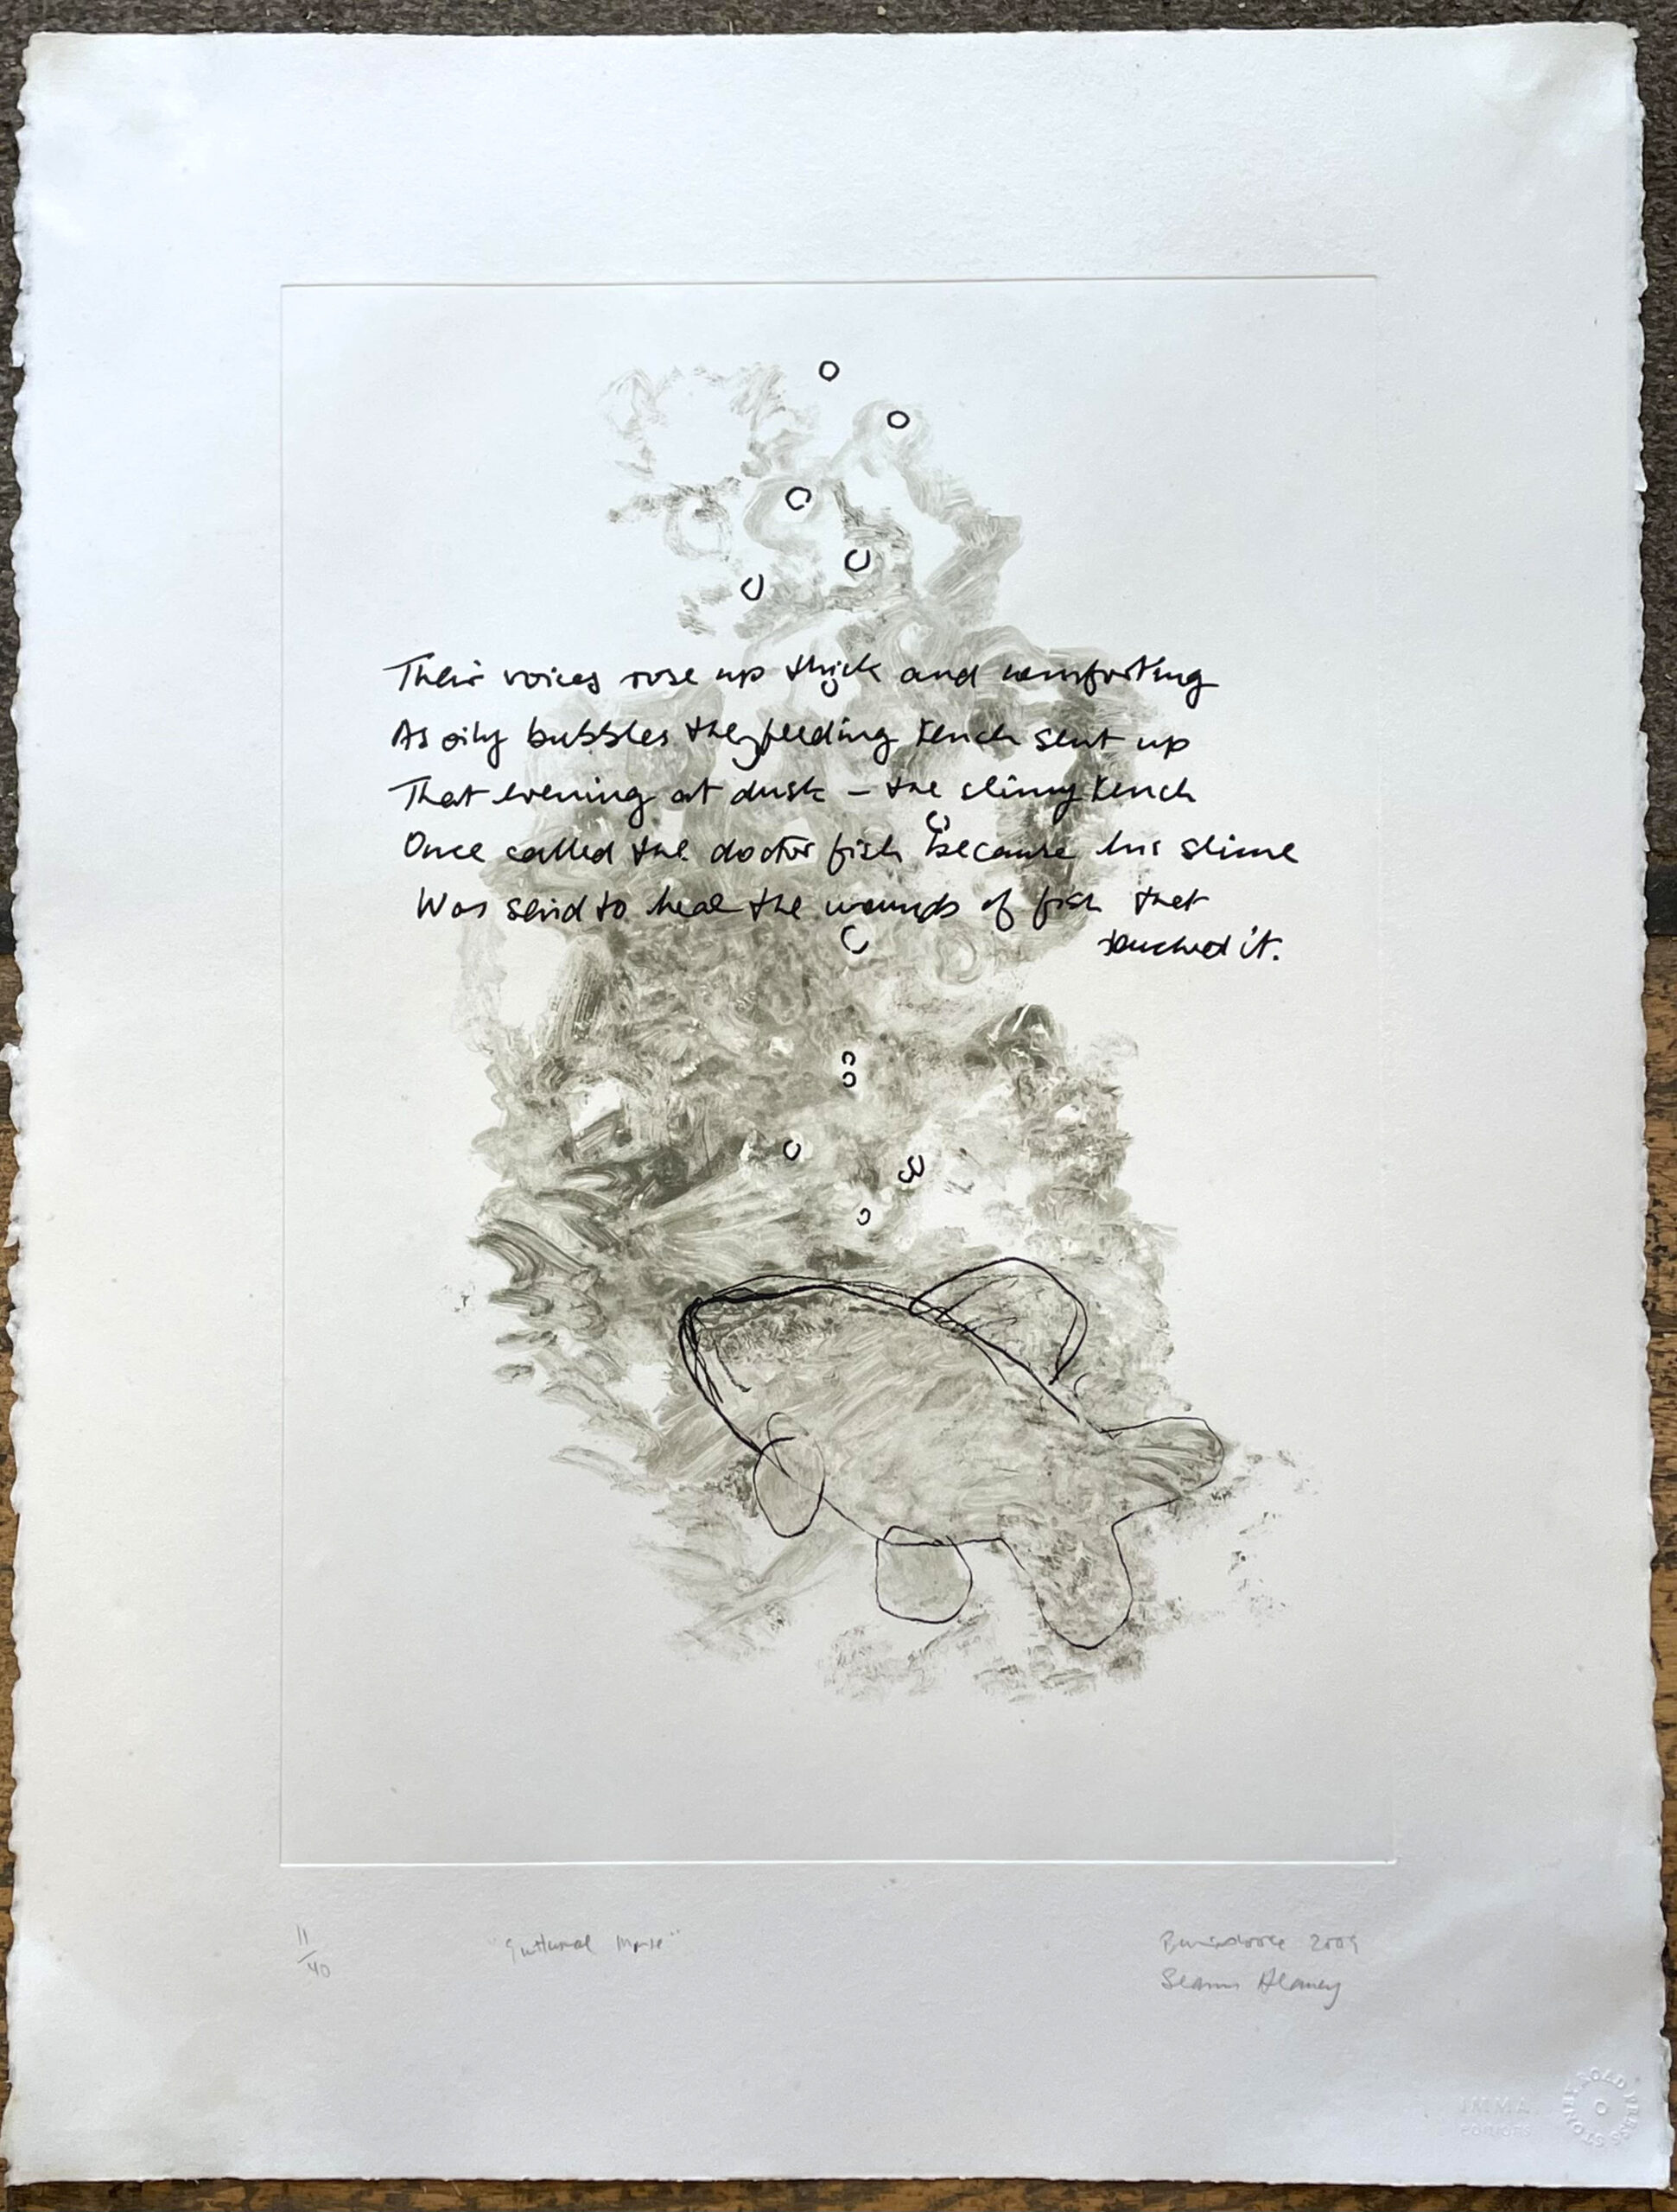 Their voices rose up thick and comforting
As oily bubbles the feeding tench sent up
That evening at dusk – the slimy tench
Once called the doctor fish because his slime
Was said to heal the wounds of fish that
touched it.
11/40
"Guttural Muse"
2009
Seamus Heaney
IMMA
EDITIONS
STONEY ROAD PRESS